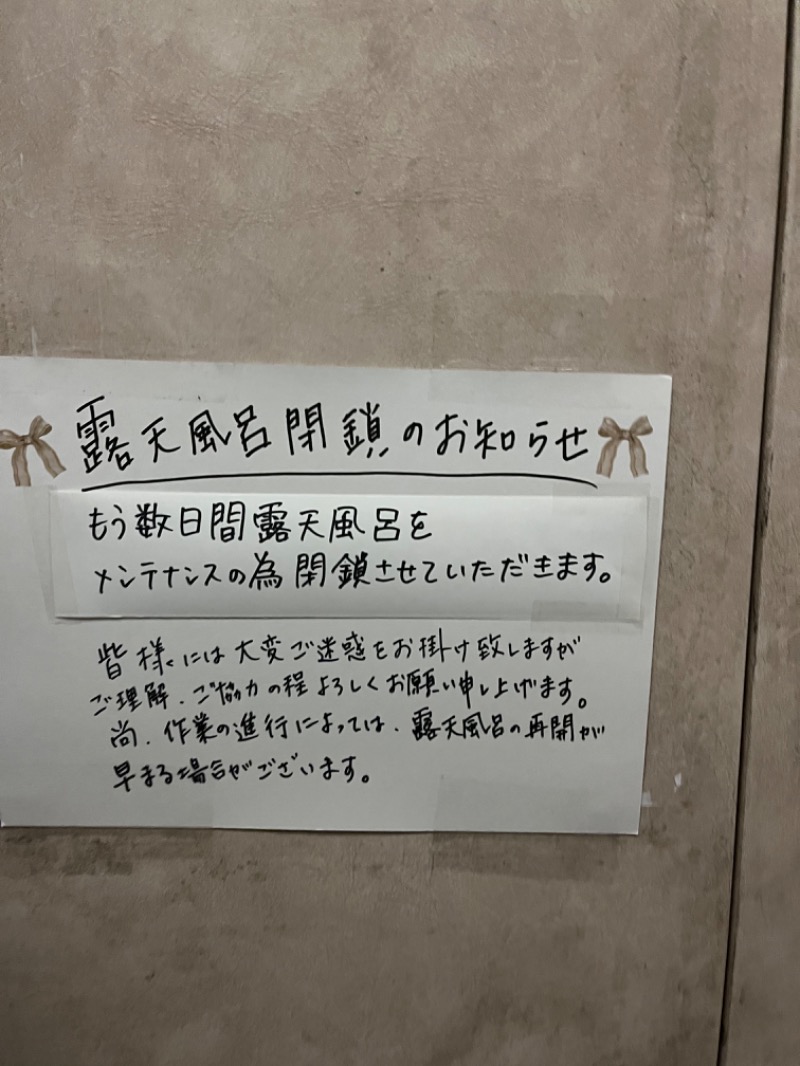 露天風呂閉鎖のお知らせ
もう数日間露天風呂を
メンテナンスの為閉鎖させていただきます。
皆様には大変ご迷惑をお掛け致しますが
ご理解、ご協力の程よろしくお願い申し上げます。
尚、作業の進行によっては、露天風呂の再開が
早まる場合がございます。